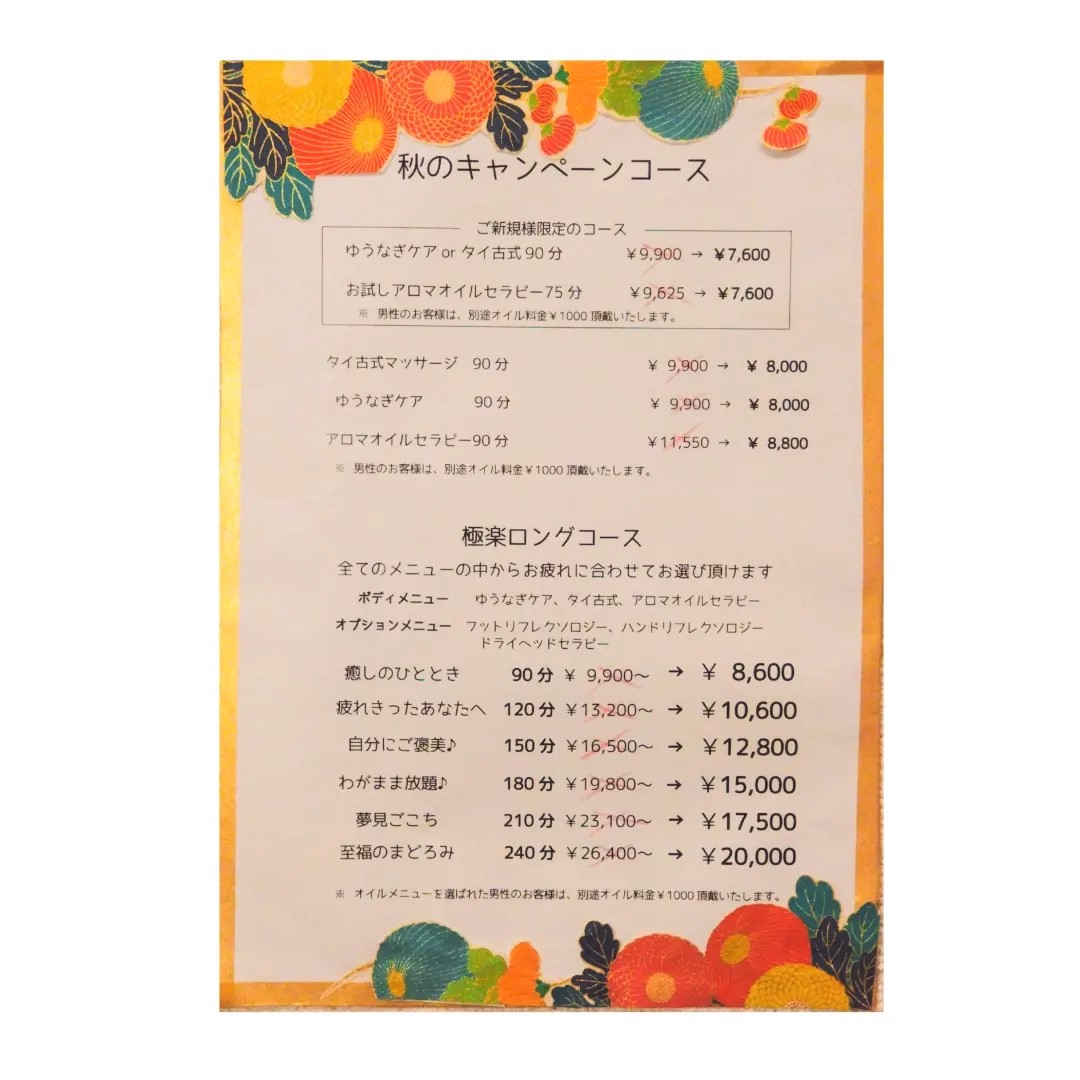 秋のキャンペーンコース
ご新規様限定のコース
ゆうなぎケア or タイ古式 90 分 ￥9,900 → ￥7,600
お試しアロマオイルセラピー75 分 ￥9,625 → ￥7,600
※ 男性のお客様は、別途オイル料金￥1000 頂戴いたします。
タイ古式マッサージ 90 分 ￥ 9,900 → ￥ 8,000
ゆうなぎケア 90 分 ￥ 9,900 → ￥ 8,000
アロマオイルセラピー90 分 ￥11,550 → ￥ 8,800
※ 男性のお客様は、別途オイル料金￥1000 頂戴いたします。
極楽ロングコース
全てのメニューの中からお疲れに合わせてお選び頂けます
ボディメニュー ゆうなぎケア、タイ古式、アロマオイルセラピー
オプションメニュー フットリフレクソロジー、ハンドリフレクソロジー
ドライヘッドセラピー
癒しのひととき 90 分 ￥ 9,900～ → ￥ 8,600
疲れきったあなたへ 120 分 ￥13,200～ → ￥10,600
自分にご褒美♪ 150 分 ￥16,500～ → ￥12,800
わがまま放題♪ 180 分 ￥19,800～ → ￥15,000
夢見ごこち 210 分 ￥23,100～ → ￥17,500
至福のまどろみ 240 分 ￥26,400～ → ￥20,000
※ オイルメニューを選ばれた男性のお客様は、別途オイル料金￥1000 頂戴いたします。